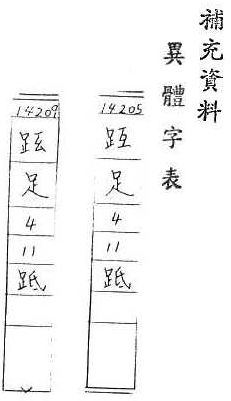 補充資料
異體字表
14205
足
4
11
14209
足
4
11